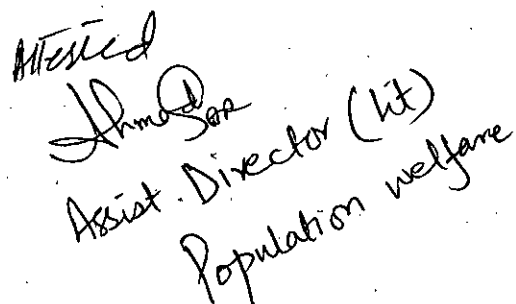 Attested
Assist. Director (Lit)
Population welfare